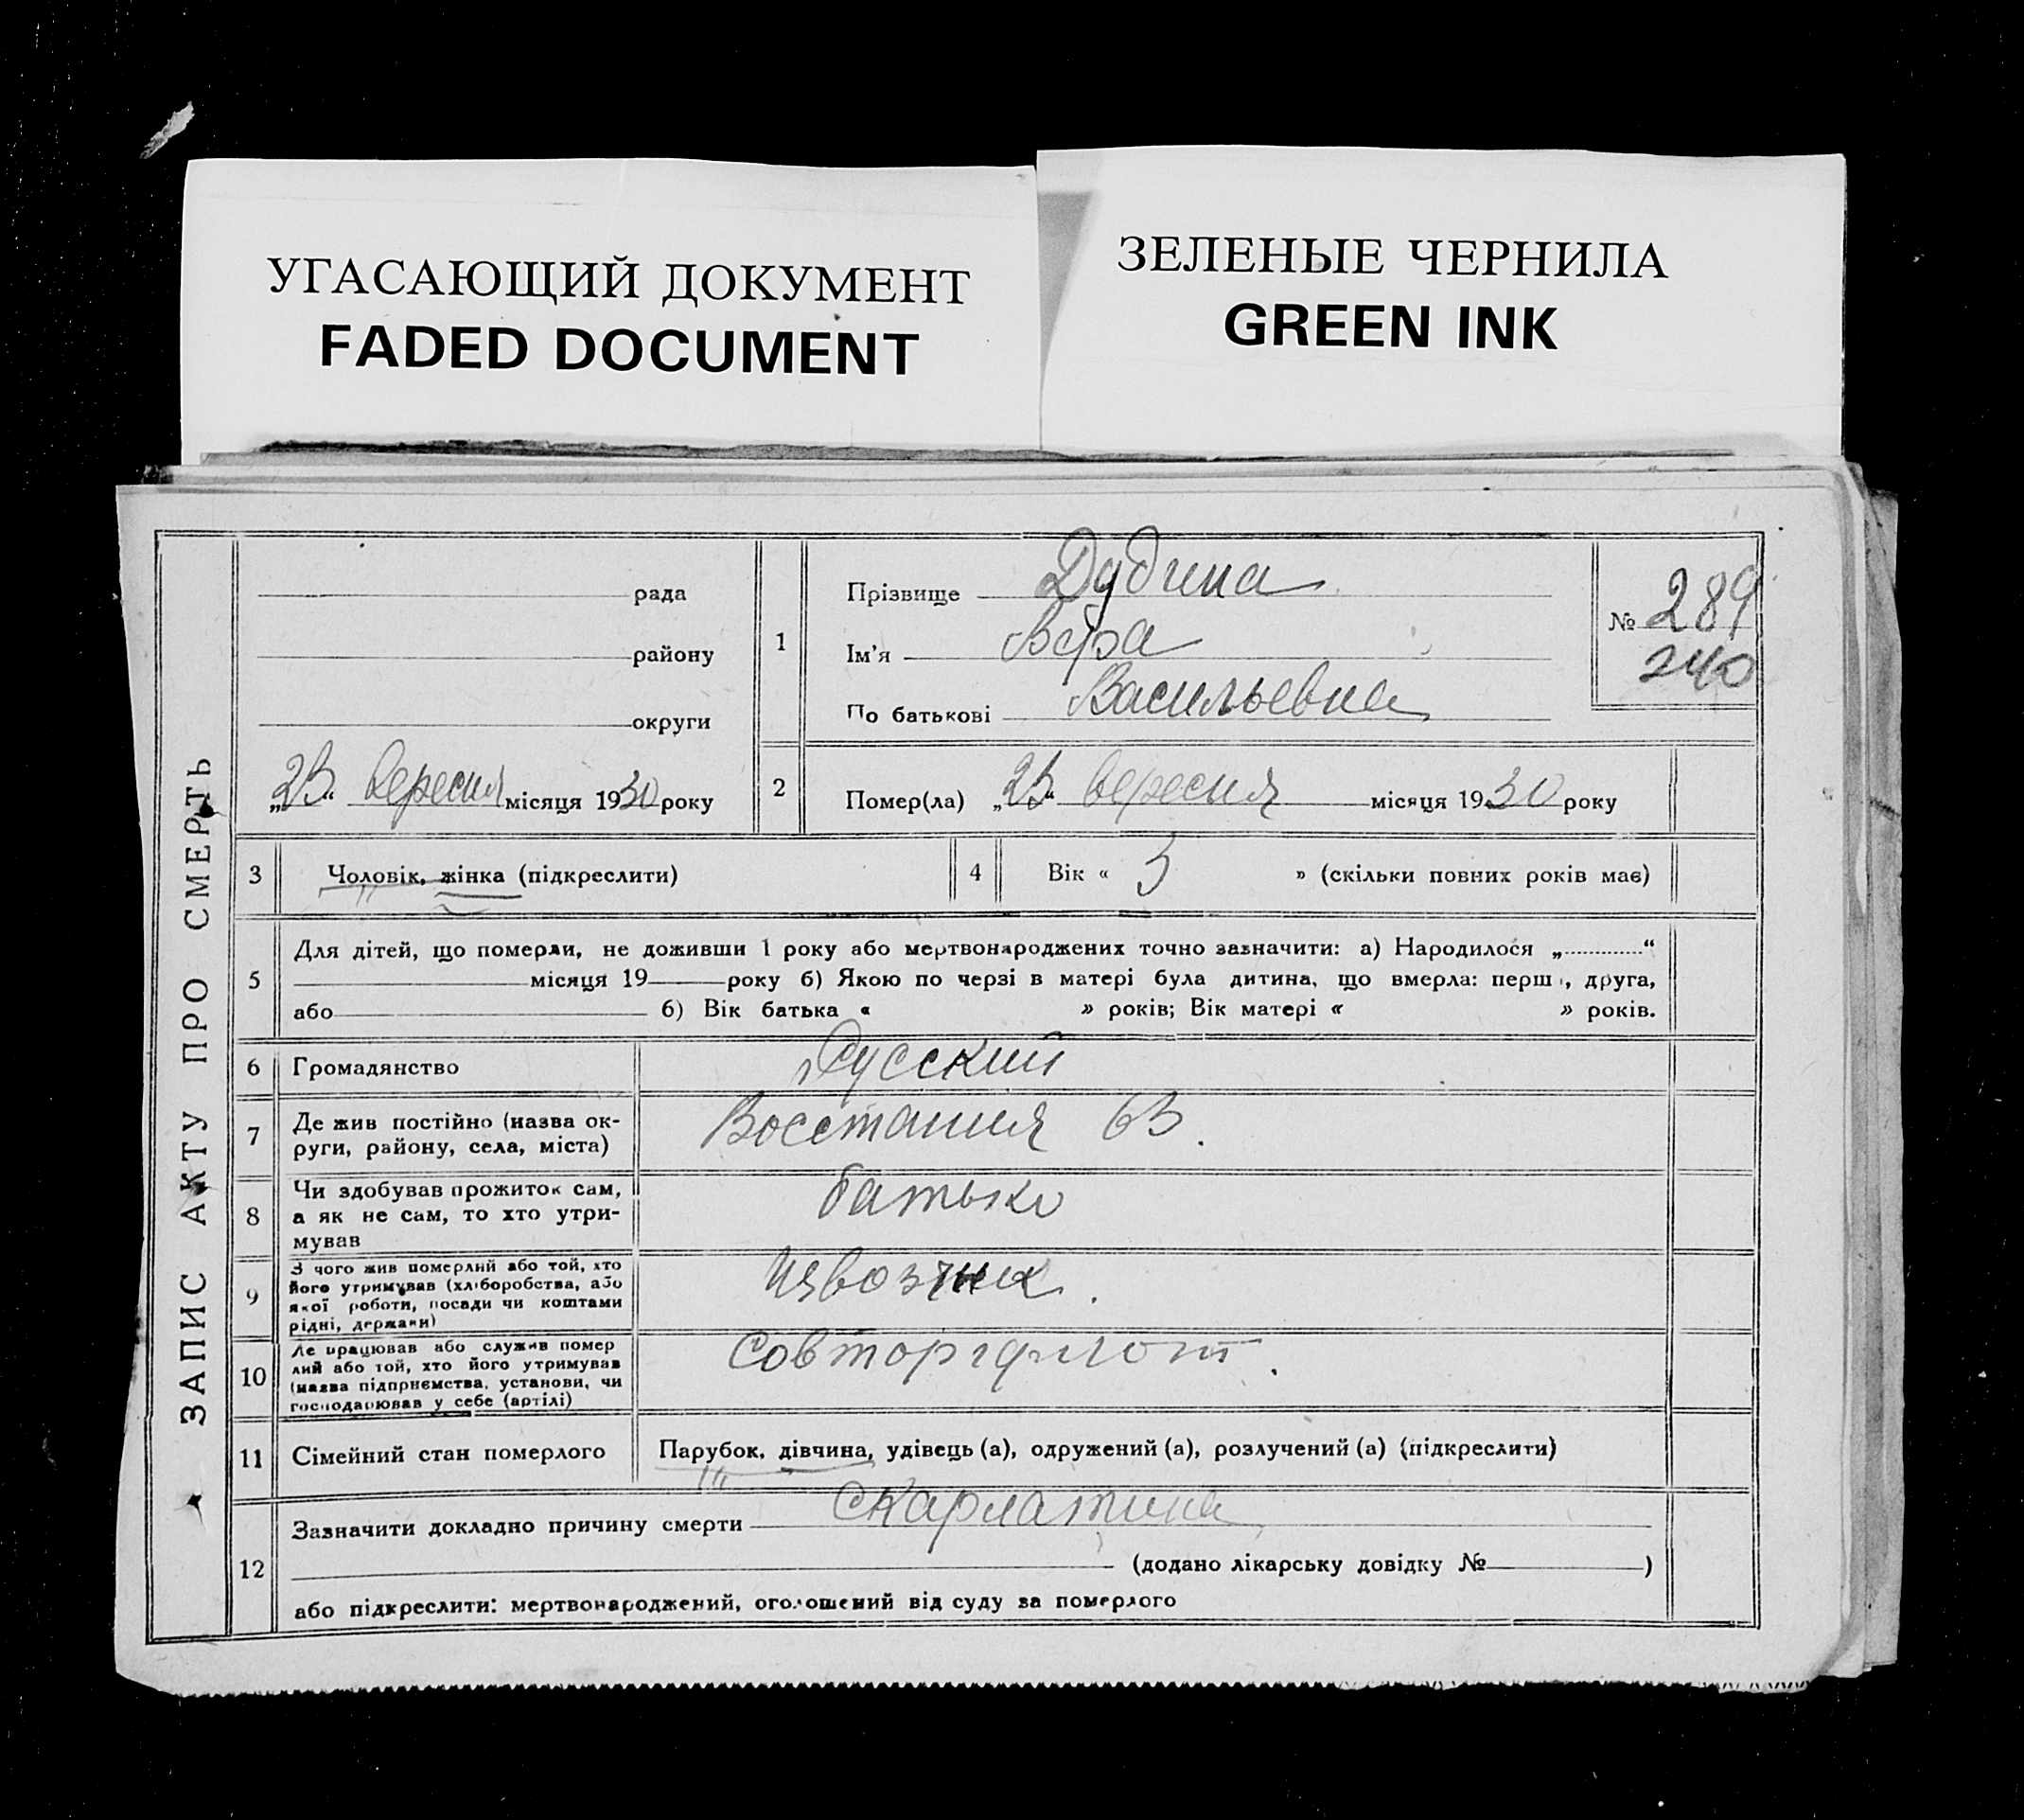 УГАСАЮЩИЙ ДОКУМЕНТ
FADED DOCUMENT
ЗЕЛЕНЫЕ ЧЕРНИЛА
GREEN INK
ЗАПИС АКТУ ПРО СМЕРТЬ
рада
району
округи
„23“ вересня місяця 1930 року
1
Прізвище Дудина
Ім'я Вера
По батькові Васильевна
№ 289
240
2 Помер(ла) „23“ вересня місяця 1930 року
3 Чоловік, жінка (підкреслити)
4 Вік « 3 » (скільки повних років має)
5 Для дітей, що померли, не доживши 1 року або мертвонароджених точно зазначити: а) Народилося „ “
місяця 19 року б) Якою по черзі в матері була дитина, що вмерла: перш, друга,
або б) Вік батька « » років; Вік матері « » років.
6 Громадянство Русский
7 Де жив постійно (назва ок-
руги, району, села, міста)
Восстания 63.
8 Чи здобував прожиток сам,
а як не сам, то хто утри-
мував
батько
9 З чого жив померлий або той, хто
його утримував (хліборобства, або
якої роботи, посади чи коштами
рідні, держави)
Извозчик.
10 Де працював або служив помер
лий або той, хто його утримував
(назва підприємства, установи, чи
господарював у себе (артілі)
Совторгфлот.
11 Сімейний стан померлого Парубок, дівчина, удівець (а), одружений (а), розлучений (а) (підкреслити)
12 Зазначити докладно причину смерти Скарлатина
(додано лікарську довідку № )
або підкреслити: мертвонароджений, оголошений від суду за померлого